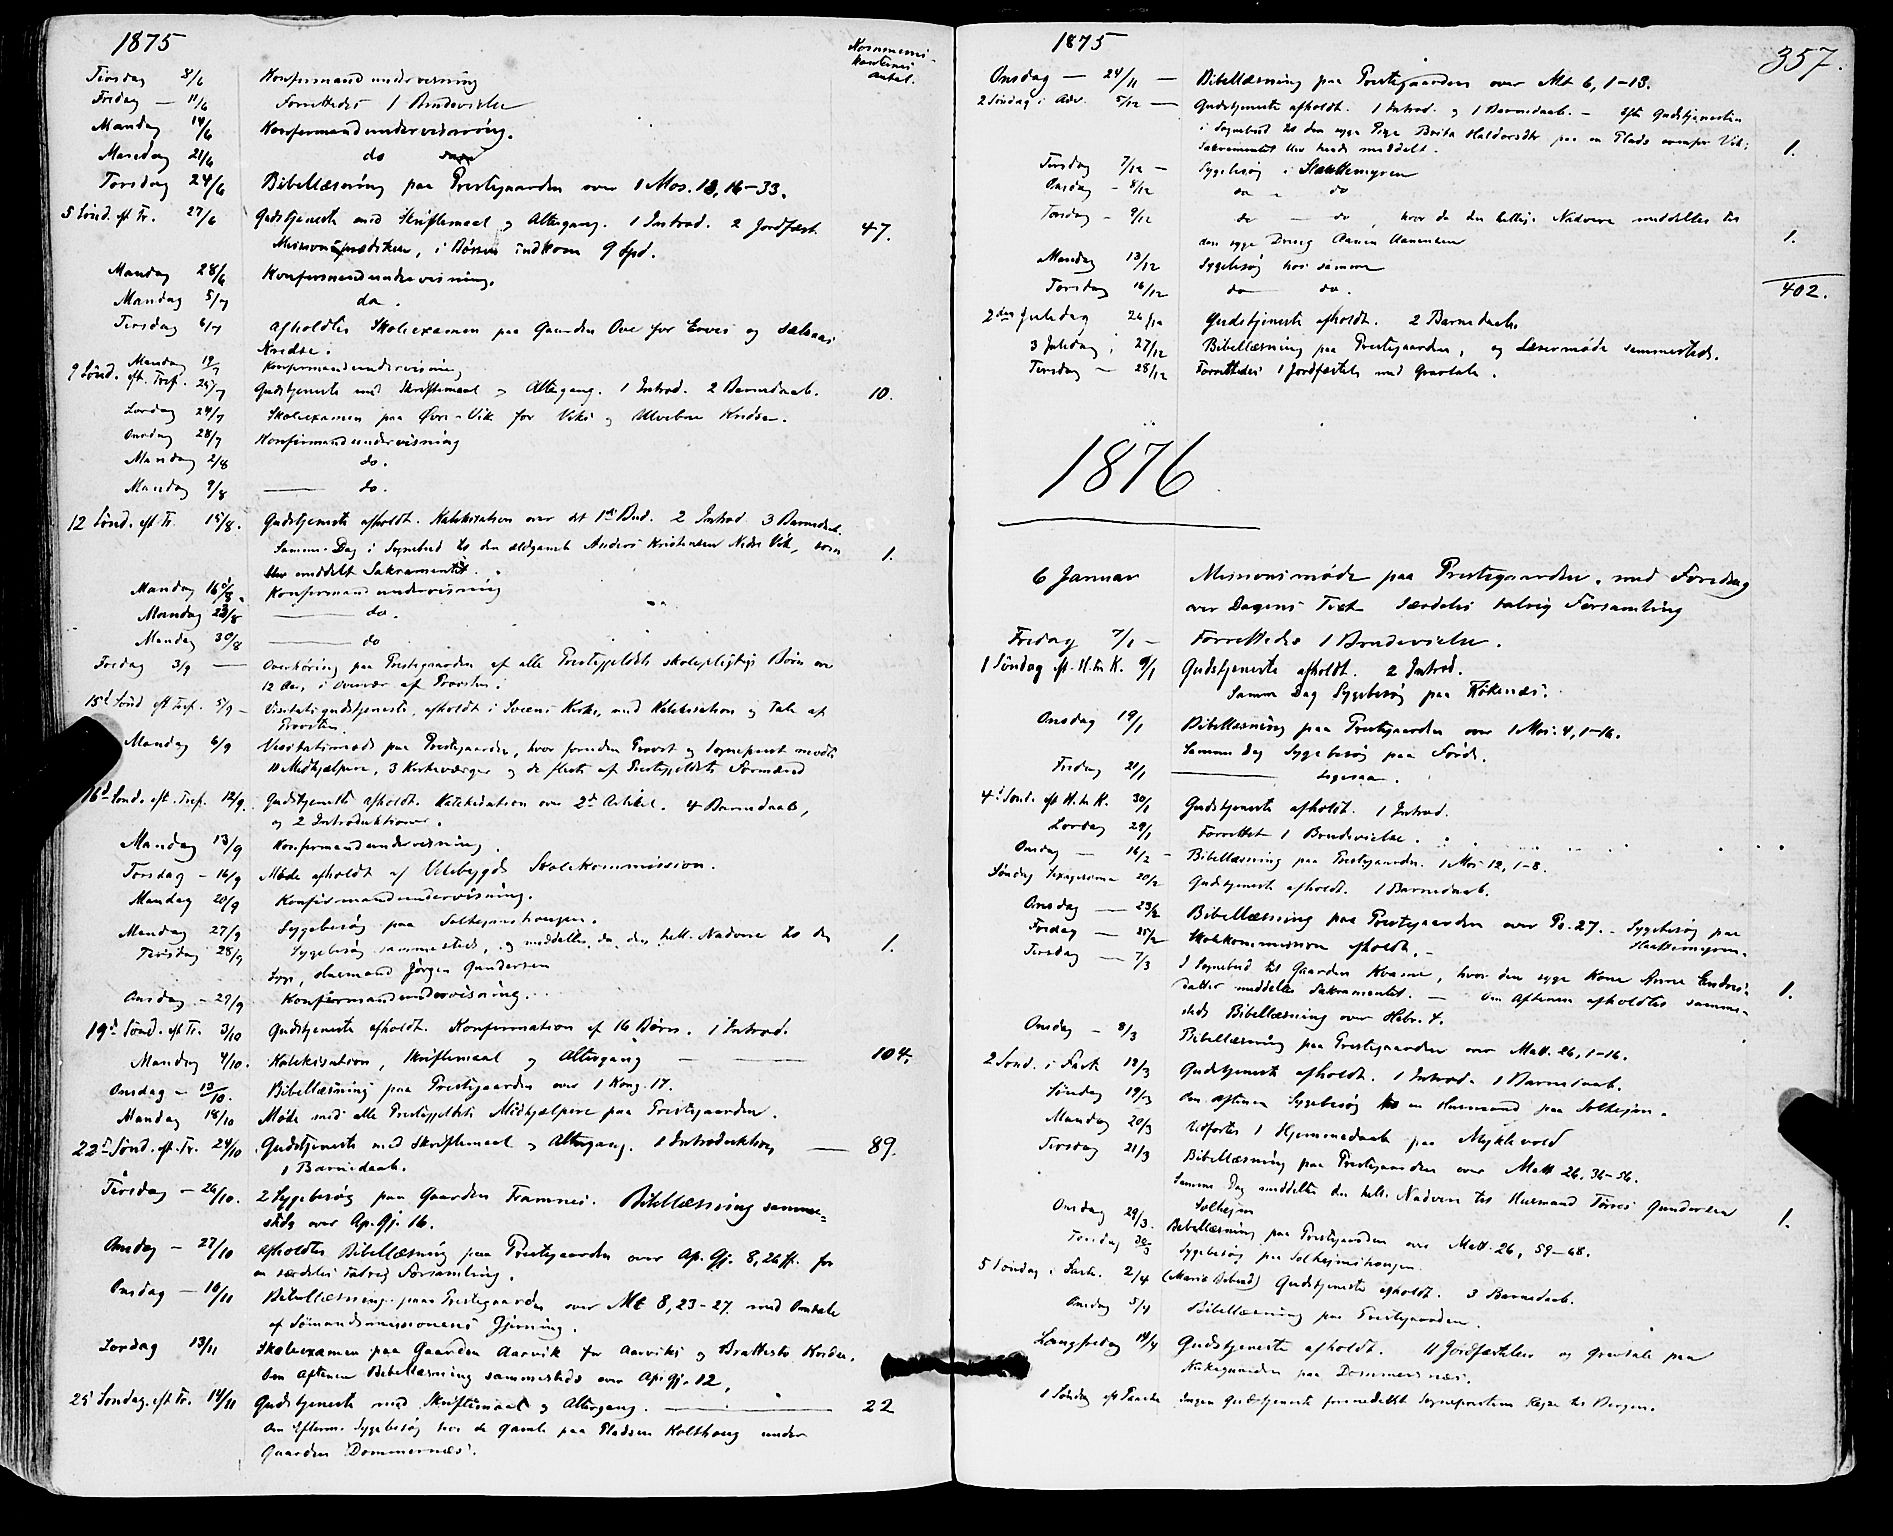 1875
Kommuni-
kanternes
antal.
Tirsdag 8/6 Konfirmandundervisning
Fredag — 11/6 Forrettedes 1 Brudevielse
Mandag 14/6 Konfirmandundervisning.
Mandag 21/6 do
Torsdag 24/6 Bibellæsning paa Prestegaarden over 1 Mos. 18, 16-33.
5 Sönd. eft Tr. 27/6 Gudstjeneste med Skriftemaal og Altergang. 1 Introd. 2 Jordfæst. 47.
Missionsprædiken, i Bössen indkom 9 Spd.
Mandag 28/6 Konfirmandundervisning.
Mandag 5/7 do.
Tirsdag 6/7 Afholdtes Skoleexamen paa Gaarden Ove for Eoves og
Kredse.
Mandag 19/7 Konfirmandundervisning
9 Sönd. eft. Tref. 25/7 Gudstjeneste med Skriftemaal og Altergang. 1 Introd. 2 Barnedaab. 10.
Lördag 24/7 Skoleexamen paa Øvre-Vik for Viks og Kredse.
Onsdag 28/7 Konfirmandundervisning
Mandag 2/8 do.
Mandag 9/8 — do.
12 Sönd. eft. Tr. 15/8. Gudstjeneste afholdt. Katekisation over det 1ste Bud. 2 Introd. 3 Barnedaab.
Samme Dag i Sognebud til den ældgamle Anders Kristensen Nedre Vik, som 1.
blev meddelt Sakramentet.
Mandag 16/8. Konfirmandundervisning
Mandag 23/8 — do.
Mandag 30/8 — do
Fredag 3/9 — Overhöring paa Prestegaarden af alle Prestegjeldets skolepligtige Börn over
12 Aar, i Overvær af Provsten.
15d Sönd eft Tref. 5/9 — Visitatsgudstjeneste, afholdt i Sveens Kirke, med Katekisation og Tale af
Provsten.
Mandag 6/9 Visitatsmöde paa Prestegaarden, hvor foruden Provst og Sogneprest mödte
11 Medhjælpere, 3 Kirkeværger og de fleste af Prestegjeldets Formænd
16d Sönd. eft. Tref. 12/9. Gudstjeneste afholdt. Katekisation over 2d Artikel. 4 Barnedaab,
og 2 Introduktioner.
Mandag 13/9 Konfirmandundervisning.
Torsdag — 16/9 Möde afholdt af Valebygds Skolekommission.
Mandag 20/9 Konfirmandundervisning.
Mandag 27/9 Sygebesög paa Solheimshougen.
Tirsdag 28/9 Sygebesög sammesteds, og meddeltes da den hell. Nadvere til den 1.
syge, Husmand Jörgen Gundersen
Onsdag — 29/9 Konfirmandundervisning.
19d Sönd. eft Tr. 3/10 Gudstjeneste afholdt. Konfirmation af 16 Börn. 1 Introd.
Mandag 4/10. Katekisation, Skriftemaal og Altergang — — 104.
Onsdag — 13/10. Bibellæsning paa Prestegaarden over 1 Kong. 17.
Mandag 18/10 Möde med alle Prestegjeldets Medhjælpere paa Prestegaarden.
22d Sönd. eft. Tr. 24/10 Gudstjeneste med Skriftemaal og Altergang. 1 Introduktion — 89.
1 Barnedaab.
Tirsdag — 26/10. 2 Sygebesög paa Gaarden Framnes. Bibellæsning samme-
steds over Ap. Gj. 16.
Onsdag — 27/10 Afholdtes Bibellæsning paa Prestegaarden over Ap. Gj. 8, 26 ff. for
en særdeles talrig Forsamling.
Onsdag — 10/11 Bibellæsning paa Prestegaarden over Mt 8, 23-27 med Omtale
af Sömandsmissionens Gjerning.
Lördag 13/11 Skoleexamen paa Gaarden Aarvik for Aarviks og Brattestö Kredse.
Om Aftenen Bibellæsning sammesteds over Ap. Gj. 12.
25d Söndag. eft Tr. 14/11 Gudstjeneste med Skriftemaal og Altergang. — 22
Om Efterm. Sygebesög hos de gamle paa Pladsen Kolthoug under
Gaarden Dommersnæs.
1875
357.
Onsdag — 24/11 — Bibellæsning paa Prestegaarden over Mt 6, 1-13.
2 Söndag i Adv. 5/12 — Gudstjeneste afholdt. 1 Introd. og 1 Barnedaab. — Efter Gudstjenesten
i Sognebud til den syge Pige Brita Haldorsdtr paa en Plads ovenfor Vik; 1.
Sakramentet blev hende meddelt.
Tirsdag 7/12 — Sygebesög i Slaattemyren
Onsdag — 8/12 do — do
Torsdag — 9/12 do — do hvor da den hellige Nadvere meddeltes til
den syge Dreng 1.
Mandag 13/12 Sygebesög hos samme
Torsdag 16/12 do — do. 402.
2den Juledag 26/12 Gudstjeneste afholdt. 2 Barnedaab.
3 Juledag 27/12 Bibellæsning paa Prestegaarden, og Læsermöde sammesteds.
Tirsdag — 28/12 Forrettedes 1 Jordfæstelse med Gravtale.
1876
6 Januar Missionsmöde paa Prestegaarden, med Foredrag
over Dagens Text Særdeles talrig Forsamling
Fredag 7/1 — Forrettedes 1 Brudevielse.
1 Söndag eft. H. tr. K. 9/1 Gudstjeneste afholdt. 2 Introd.
Samme Dag Sygebesög paa Kökenæs.
Onsdag 19/1 Bibellæsning paa Prestegaarden over 1 Mos. 4, 1-16.
Samme Dag Sygebesög paa Förde.
Fredag 21/1 — ligesaa.
4d Sönd. eft H. tr. K. 30/1 Gudstjeneste afholdt. 1 Introd.
Lördag 29/1 Forrettet 1 Brudevielse.
Onsdag — 16/2 — Bibellæsning paa Prestegaarden. 1 Mos 12, 1-8.
Söndag Sexagesima 20/2 Gudstjeneste afholdt. 1 Barnedaab.
Onsdag — 23/2 Bibellæsning paa Prestegaarden over Ps. 27. — Sygebesög paa
Slaattemyren.
Fredag — 25/2 Skolekommission afholdt. —
Tirsdag — 7/3 I Sognebud til Gaarden Kvame, hvor den syge Kone Anna Endres- 1.
datter meddeltes Sakramentet. — Om Aftenen afholdtes samme-
steds Bibellæsning over Hebr. 4.
Onsdag — 8/3 Bibellæsning paa Prestegaarden over Matt. 26, 1-16.
2 Sönd. i Fast. 12/3 Gudstjeneste afholdt. 1 Introd. 1 Barnedaab.
Söndag 19/3 Om Aftenen Sygebesög hos en Husmand paa Solheim.
Mandag 20/3 Udförtes 1 Hjemmedaab paa Myklevold
Tirsdag 21/3 Bibellæsning paa Prestegaarden over Matt 26, 36-56.
Samme Dag meddeltes den hell. Nadvere til Husmand Törres Gundersen 1.
Solheim
Onsdag 29/3. Bibellæsning paa Prestegaarden over Matt. 26, 59-68.
Torsdag 30/3 Sygebesög paa Solheimshougen.
5 Söndag i Fast. 2/4 (Mariæ Bebud) Gudstjeneste afholdt. 3 Barnedaab.
Onsdag 5/4 Bibellæsning paa Prestegaarden.
Langfredag 14/4 Gudstjeneste afholdt. 11 Jordfæstelser og Gravtale paa
paa Dommersnæs.
1 Söndag eft Paaske Ingen Gudstjeneste formedelst Sognepresten Rejse til Bergen.